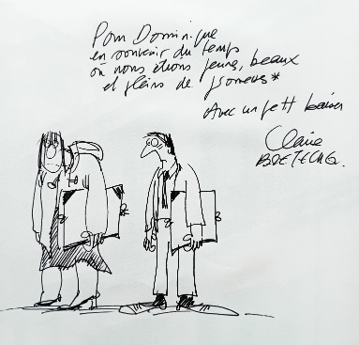 Pour Dominique
en souvenir du temps
où nous étions jeunes, beaux
et pleins de promesses*
Avec un petit baiser
Claire
BRETECHER